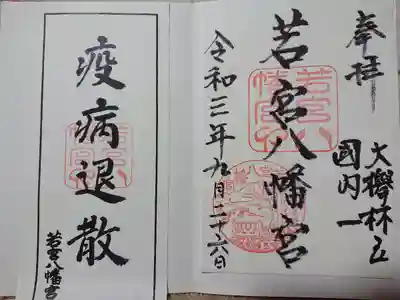 奉拝
大欅林立
国内一
若宮八幡宮
令和三年九月二十六日
若宮八幡宮
疫病退散
若宮八幡宮